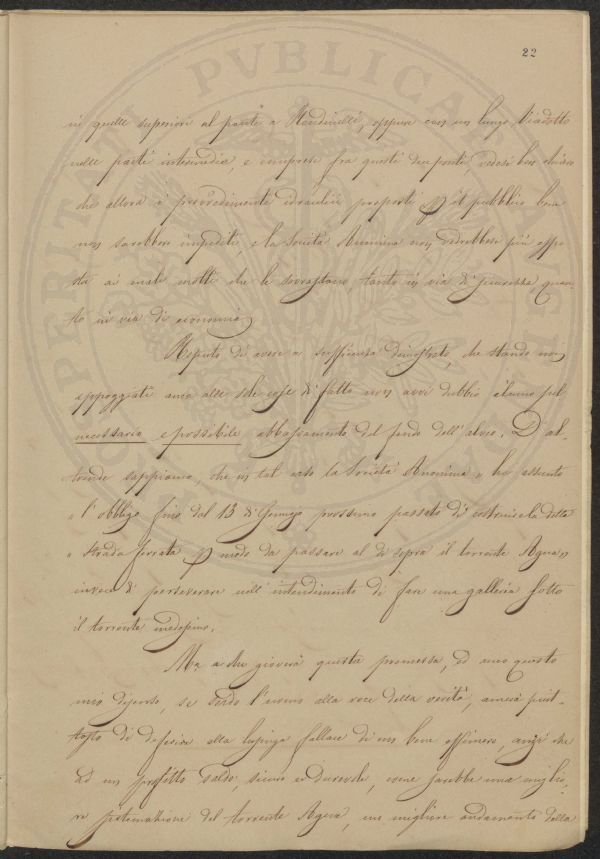 22
in quelle superiori al ponte a Mendinelli, oppure con un lungo Viadotto
nelle parti intermedie, e comprese fra questi due ponti, vedesi ben chiaro
che allora i provvedimenti idraulici proposti p il pubblico bene
non sarebbero impediti, e la Società Anonima non vedrebbesi più espo
sta ai mali molti che le sovrastano tanto in via di sicurezza, quan
to in via di economia.
Reputo di avere a sufficienza dimostrato, che stando noi
appoggiati anco alle sole cose di fatto non avvi dubbio alcuno sul
necessario e possibile abbassamento del fondo dell'alveo. D'al-
tronde sappiamo, che in tal caso la Società Anonima " ha assunto
" l'obbligo fino dal 13 di Gennajo prossimo passato di costruire la detta
" Strada ferrata p modo da passare al di sopra il torrente Agna,
invece di perseverare nell'intendimento di fare una galleria sotto
il torrente medesimo.
Ma a che gioverà questa promessa, ed anco questo
mio discorso, se sordo l'uomo alla voce della verità, amerà piut-
tosto di deferire alla lusinga fallace di un bene effimero, anzi che
ad un profitto saldo, sicuro e durevole, come sarebbe una miglio,
re sistemazione del torrente Agna, un migliore andamento della
PVBLICA